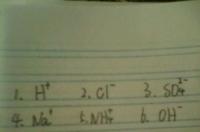 1. H⁺ 2. Cl⁻ 3. SO₄²⁻
4. Na⁺ 5. NH₄⁺ 6. OH⁻